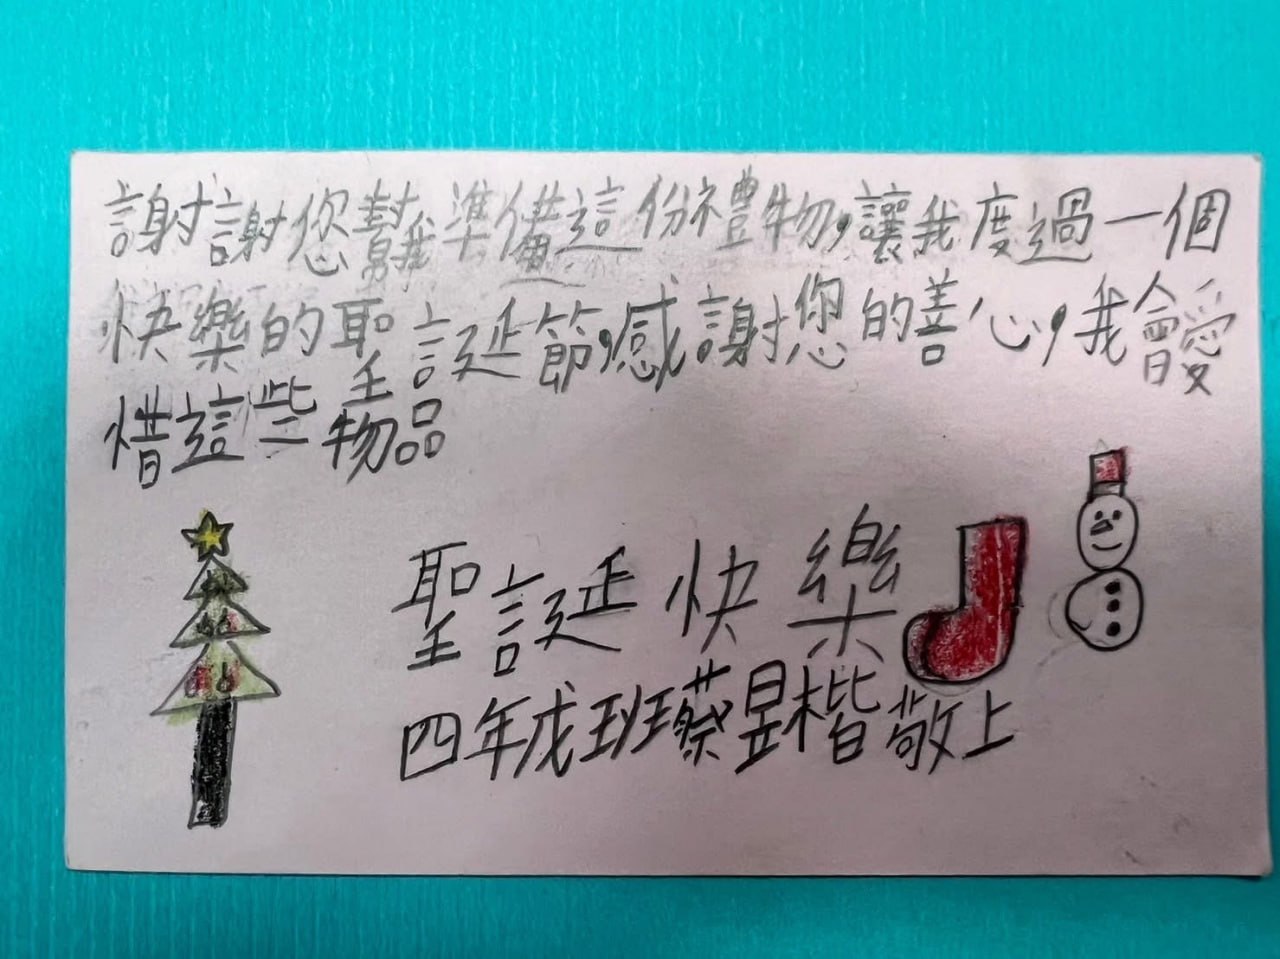 謝謝您幫我準備這份禮物,讓我度過一個
快樂的聖誕節,感謝您的善心,我會愛
惜這些物品
聖誕快樂
四年戊班蔡昱楷敬上